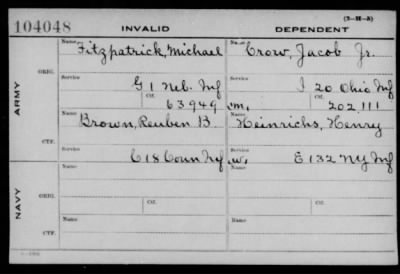 (3-H-3)
104048 INVALID DEPENDENT
Name Fitzpatrick, Michael Name Crow, Jacob Jr.
ARMY
ORIG.
Service G 1 Neb. Inf Service I 20 Ohio Inf
Ctf. 63949 m. Ctf. 202,111
Name Brown, Reuben B. Name Heinrichs, Henry
CTF.
Service C 18 Conn Inf w. Service E 132 NY Inf
NAVY
ORIG.
Name Name
Ctf. Ctf.
CTF.
Name Name